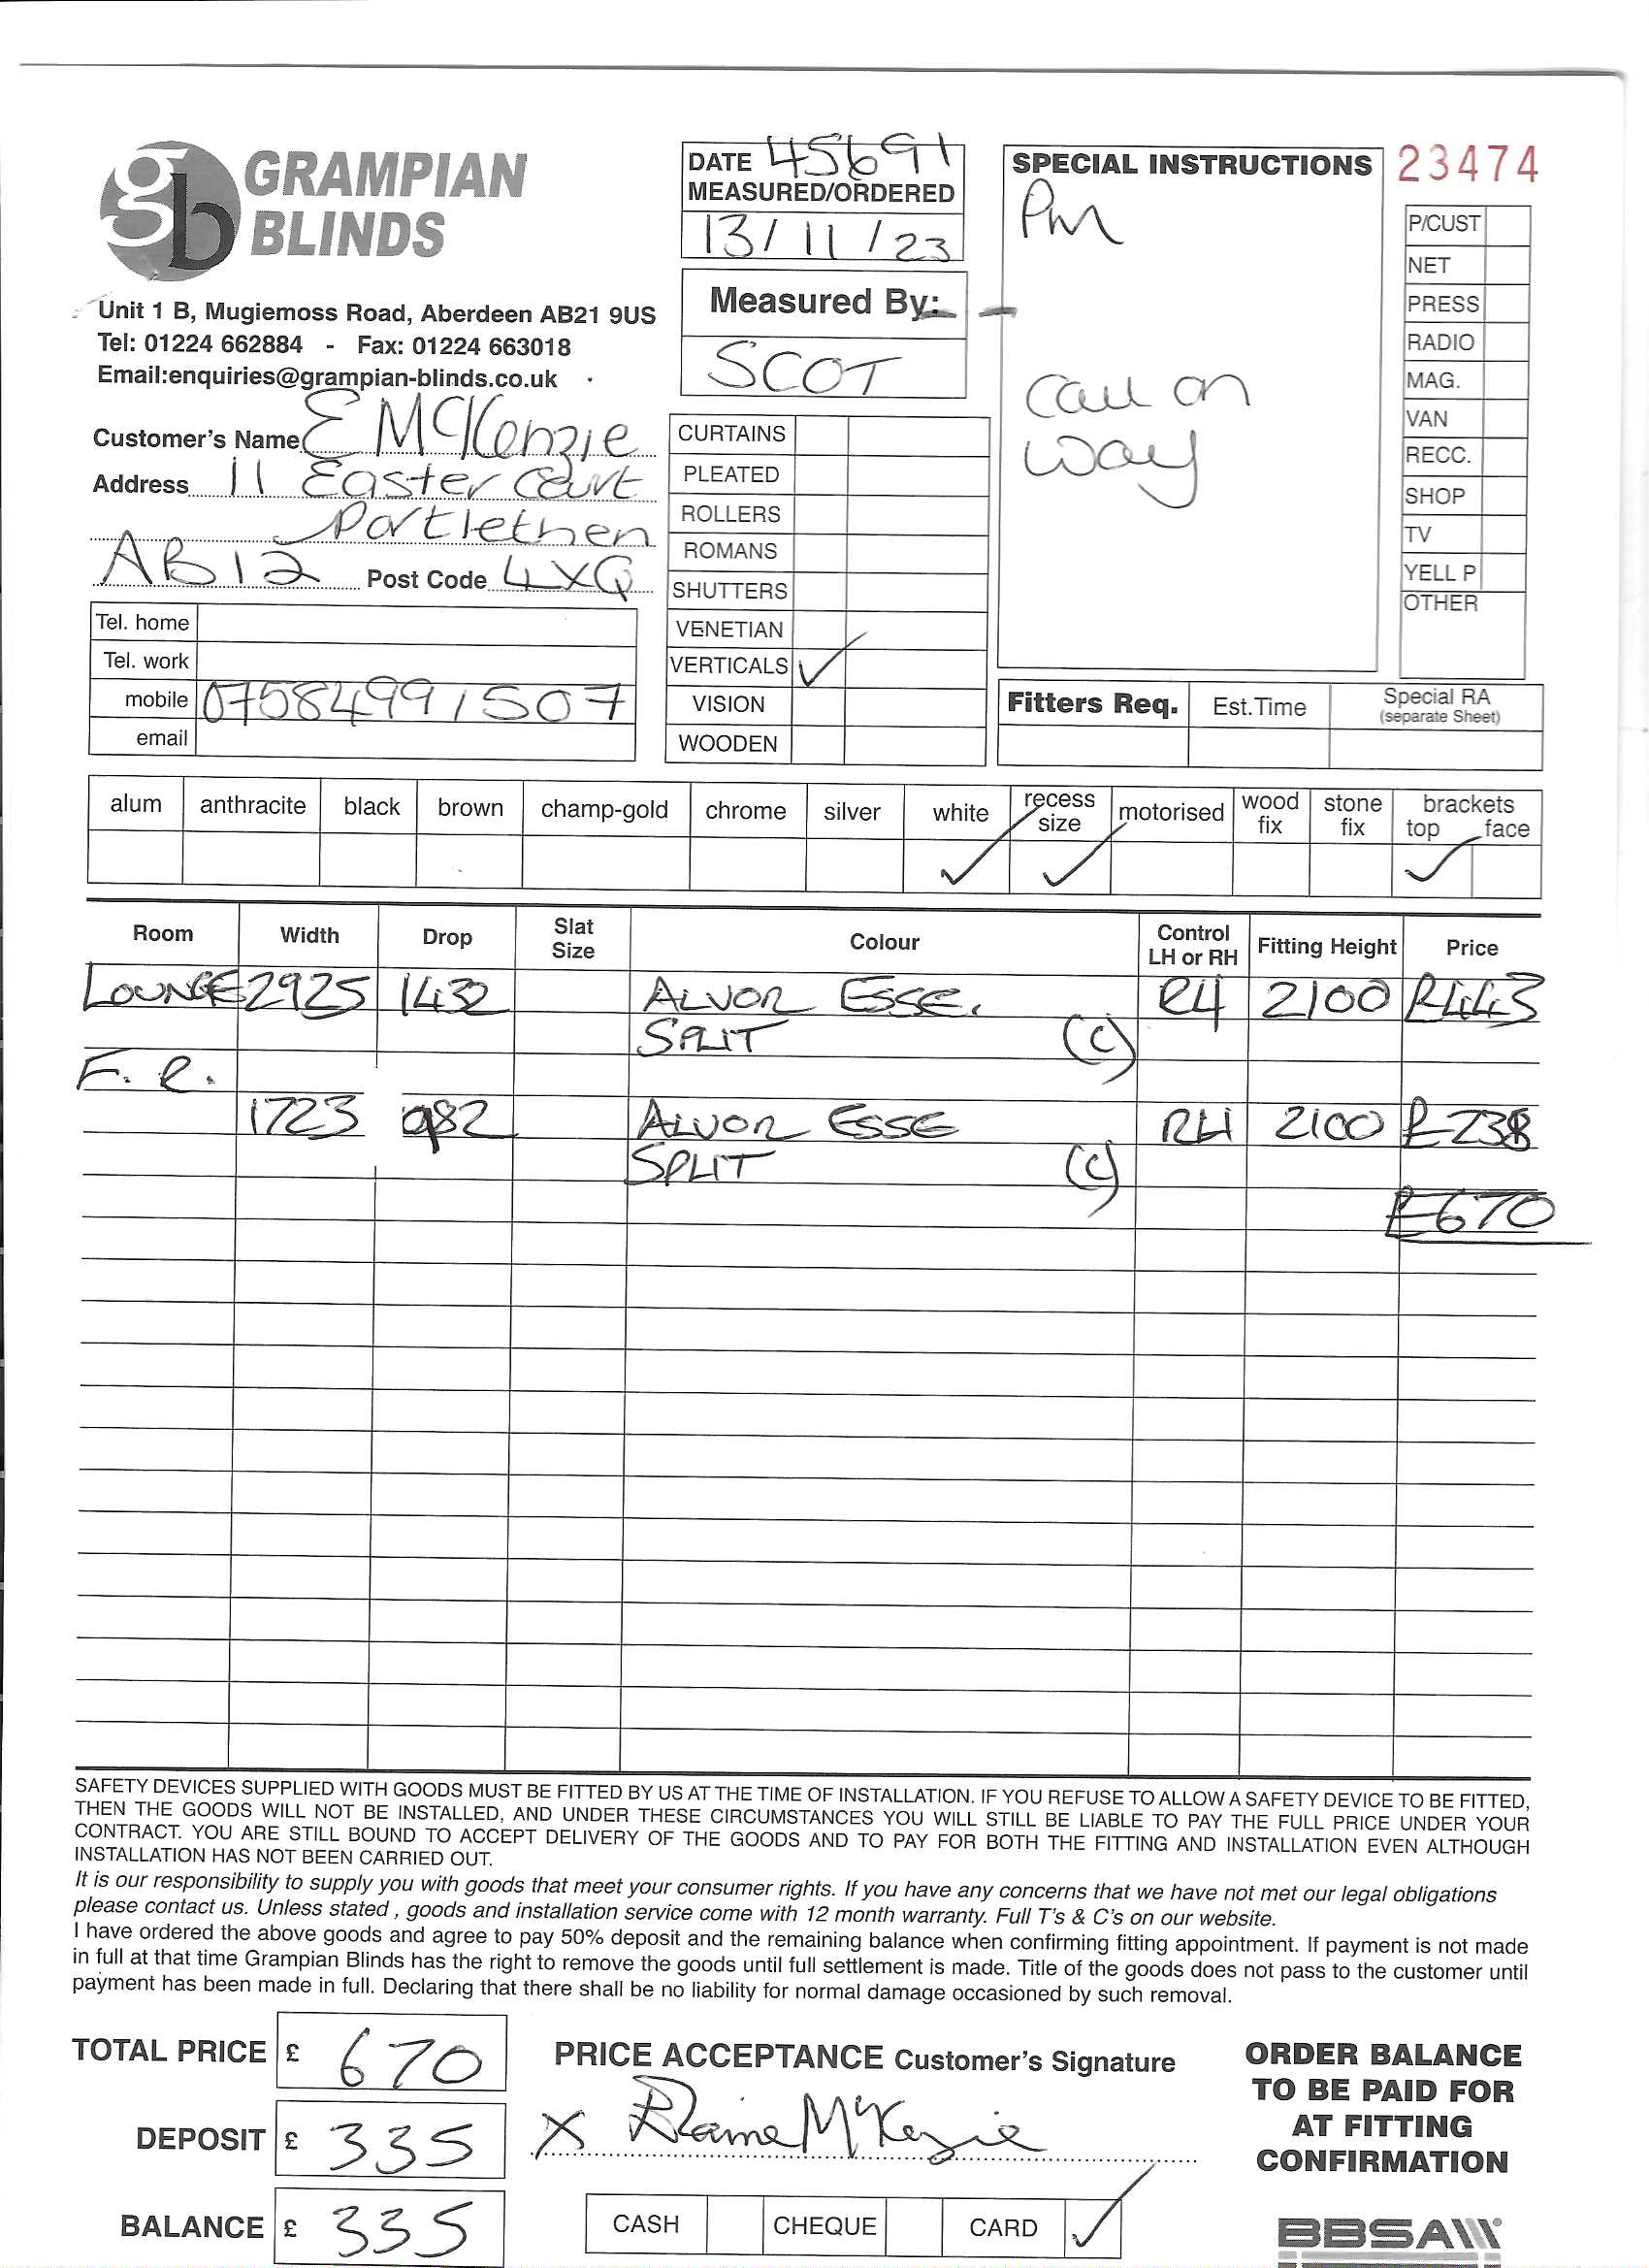 GRAMPIAN
BLINDS
gb
Unit 1 B, Mugiemoss Road, Aberdeen AB21 9US
Tel: 01224 662884 - Fax: 01224 663018
Email:enquiries@grampian-blinds.co.uk
Customer's Name E McKenzie
Address 11 Easter Court
Portlethen
AB12 Post Code 4XQ
Tel. home
Tel. work
mobile 07584991507
email
DATE 45691
MEASURED/ORDERED
13/11/23
Measured By:
SCOT
CURTAINS
PLEATED
ROLLERS
ROMANS
SHUTTERS
VENETIAN
VERTICALS ✓
VISION
WOODEN
SPECIAL INSTRUCTIONS
Pm
Call on
way
23474
P/CUST
NET
PRESS
RADIO
MAG.
VAN
RECC.
SHOP
TV
YELL P
OTHER
Fitters Req. Est.Time Special RA
(separate Sheet)
alum anthracite black brown champ-gold chrome silver white recess size motorised wood fix stone fix brackets top face
✓ ✓ ✓
Room Width Drop Slat Size Colour Control LH or RH Fitting Height Price
LOUNGE 2925 1432 ALVOR ESSE. RH 2100 £443
SPLIT (C)
F.R.
1723 982 ALVOR ESSE RH 2100 £238
SPLIT (C)
£670
SAFETY DEVICES SUPPLIED WITH GOODS MUST BE FITTED BY US AT THE TIME OF INSTALLATION. IF YOU REFUSE TO ALLOW A SAFETY DEVICE TO BE FITTED,
THEN THE GOODS WILL NOT BE INSTALLED, AND UNDER THESE CIRCUMSTANCES YOU WILL STILL BE LIABLE TO PAY THE FULL PRICE UNDER YOUR
CONTRACT. YOU ARE STILL BOUND TO ACCEPT DELIVERY OF THE GOODS AND TO PAY FOR BOTH THE FITTING AND INSTALLATION EVEN ALTHOUGH
INSTALLATION HAS NOT BEEN CARRIED OUT.
It is our responsibility to supply you with goods that meet your consumer rights. If you have any concerns that we have not met our legal obligations
please contact us. Unless stated , goods and installation service come with 12 month warranty. Full T's & C's on our website.
I have ordered the above goods and agree to pay 50% deposit and the remaining balance when confirming fitting appointment. If payment is not made
in full at that time Grampian Blinds has the right to remove the goods until full settlement is made. Title of the goods does not pass to the customer until
payment has been made in full. Declaring that there shall be no liability for normal damage occasioned by such removal.
TOTAL PRICE £ 670
DEPOSIT £ 335
BALANCE £ 335
PRICE ACCEPTANCE Customer's Signature
X Elaine McKenzie
CASH CHEQUE CARD ✓
ORDER BALANCE
TO BE PAID FOR
AT FITTING
CONFIRMATION
BBSA